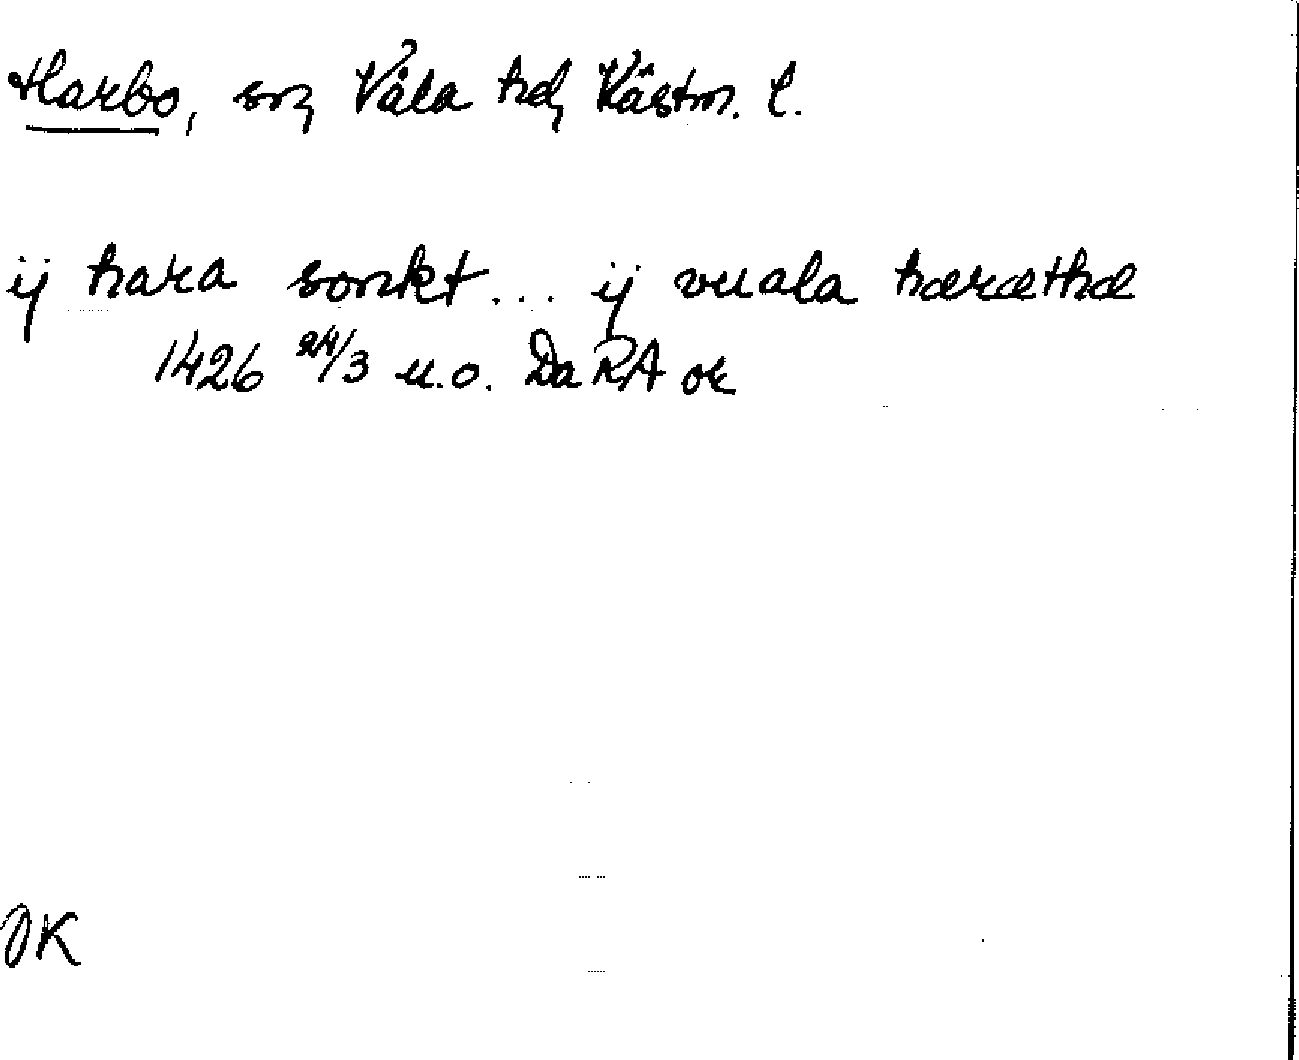 Harbo, sn, Våla hd, Västm. l.
ij hara sonkt... ij vuala hæræthæ
1426 24/3 u.o. Da RA or
OK